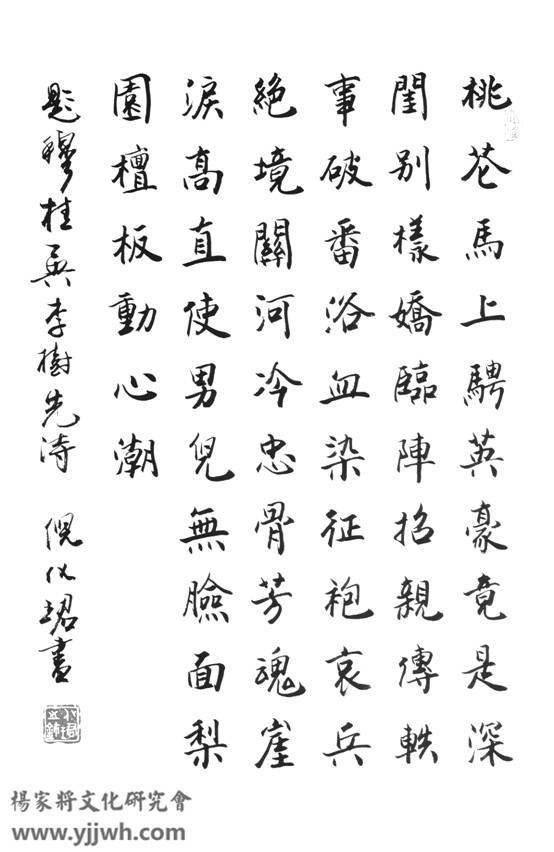 桃花馬上騁英豪竟是深
閨別樣嬌臨陣招親傳軼
事破番浴血染征袍哀兵
絕境關河冷忠骨芳魂崖
淚高直使男兒無臉面梨
園檀板動心潮
題穆桂英李樹先詩 倪化珺書
楊家將文化研究會
www.yjjwh.com